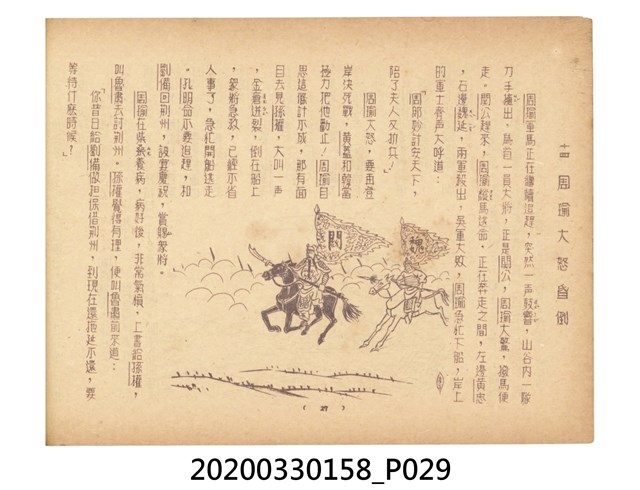 周瑜大怒昏倒
周瑜軍馬正在繼續追趕，突然一声鼓響，山谷内一隊
刀手擁出，為首一員大將，正是關公，周瑜大驚，撥馬便
走。關公趕來，周瑜縱馬逃命。正在奔走之間，左邊黃忠
，右邊魏延，兩軍殺出，吳軍大敗，周瑜急忙下船，岸上
的軍士齊声大呼道：
「周郎妙計安天下，
陪了夫人又折兵。」
周瑜大怒，要再登
岸決死戰，黃蓋和韓當
極力把他勸止！周瑜自
思這個計不成，那有面
目去見孫權，大叫一声
，金瘡迸裂，倒在船上
，眾將急救，已經不省
人事了，急忙開船逃走
。孔明命不要追趕，和
劉備回荊州，設宴慶祝，賞賜眾將。
周瑜在柴桑養病，病好後，非常氣憤，上書給孫權，
叫魯肅去討荊州。孫權覺得有理，便叫魯肅前來道：
「你昔日給劉備做担保借荊州，到現在還拖延不還，要
等待什麽時候？」
關
魏
( 27 )
20200330158_P029